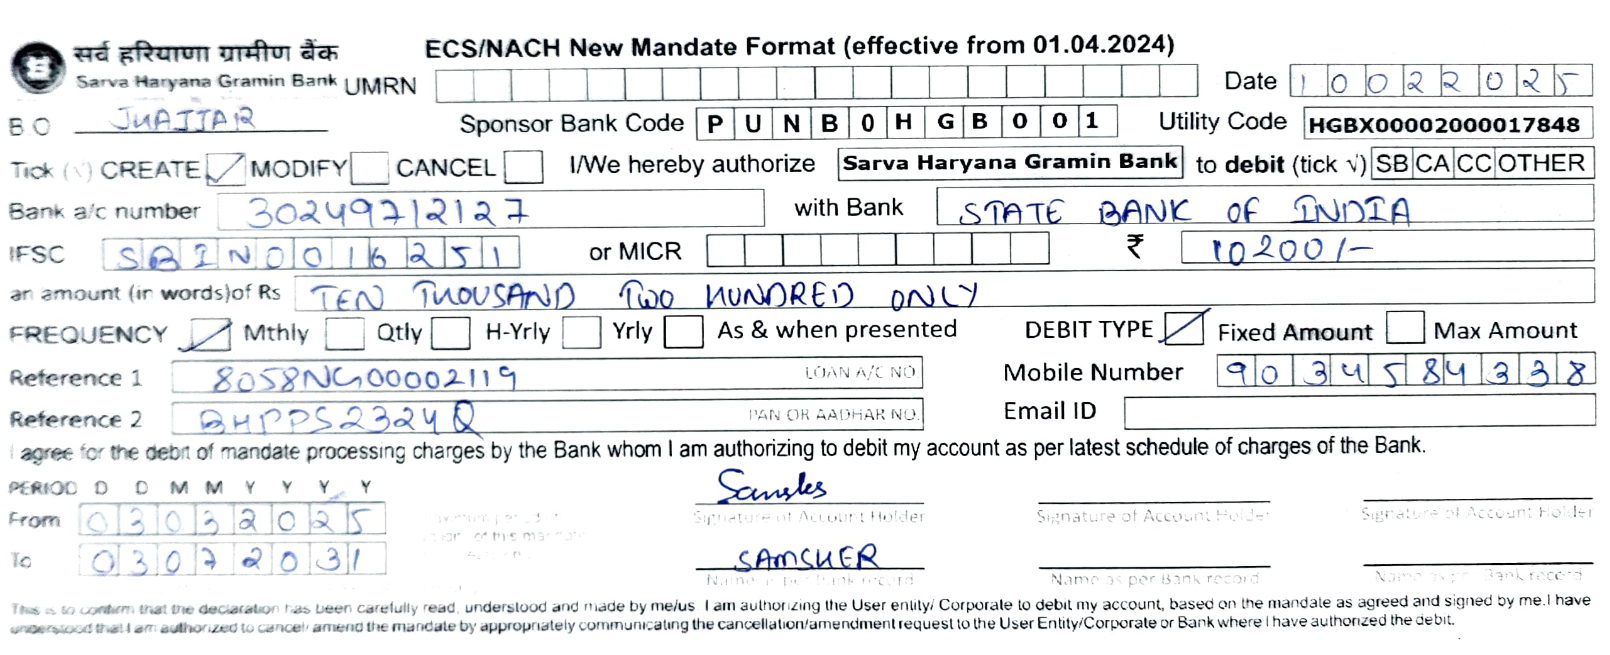 सर्व हरियाणा ग्रामीण बैंक ECS/NACH New Mandate Format (effective from 01.04.2024)
Sarva Haryana Gramin Bank UMRN Date 10022025
B O JHAJJAR Sponsor Bank Code PUNB0HGB001 Utility Code HGBX00002000017848
Tick (√) CREATE ✓ MODIFY CANCEL I/We hereby authorize Sarva Haryana Gramin Bank to debit (tick √) SB CA CC OTHER
Bank a/c number 30249712127 with Bank STATE BANK OF INDIA
IFSC SBIN0016251 or MICR ₹ 10200/-
an amount (in words)of Rs TEN THOUSAND TWO HUNDRED ONLY
FREQUENCY ✓ Mthly Qtly H-Yrly Yrly As & when presented DEBIT TYPE ✓ Fixed Amount Max Amount
Reference 1 8058NG00002119 LOAN A/C NO. Mobile Number 9034584338
Reference 2 BHPPS2324Q PAN OR AADHAR NO. Email ID
I agree for the debit of mandate processing charges by the Bank whom I am authorizing to debit my account as per latest schedule of charges of the Bank.
PERIOD D D M M Y Y Y Y
From 03032025 Signature of Account Holder Signature of Account Holder Signature of Account Holder
To 03072031 SAMSHER
Name as per bank record Name as per Bank record Name as per Bank record
This is to confirm that the declaration has been carefully read, understood and made by me/us I am authorizing the User entity/ Corporate to debit my account, based on the mandate as agreed and signed by me.I have
understood that I am authorized to cancel/ amend the mandate by appropriately communicating the cancellation/amendment request to the User Entity/Corporate or Bank where I have authorized the debit.